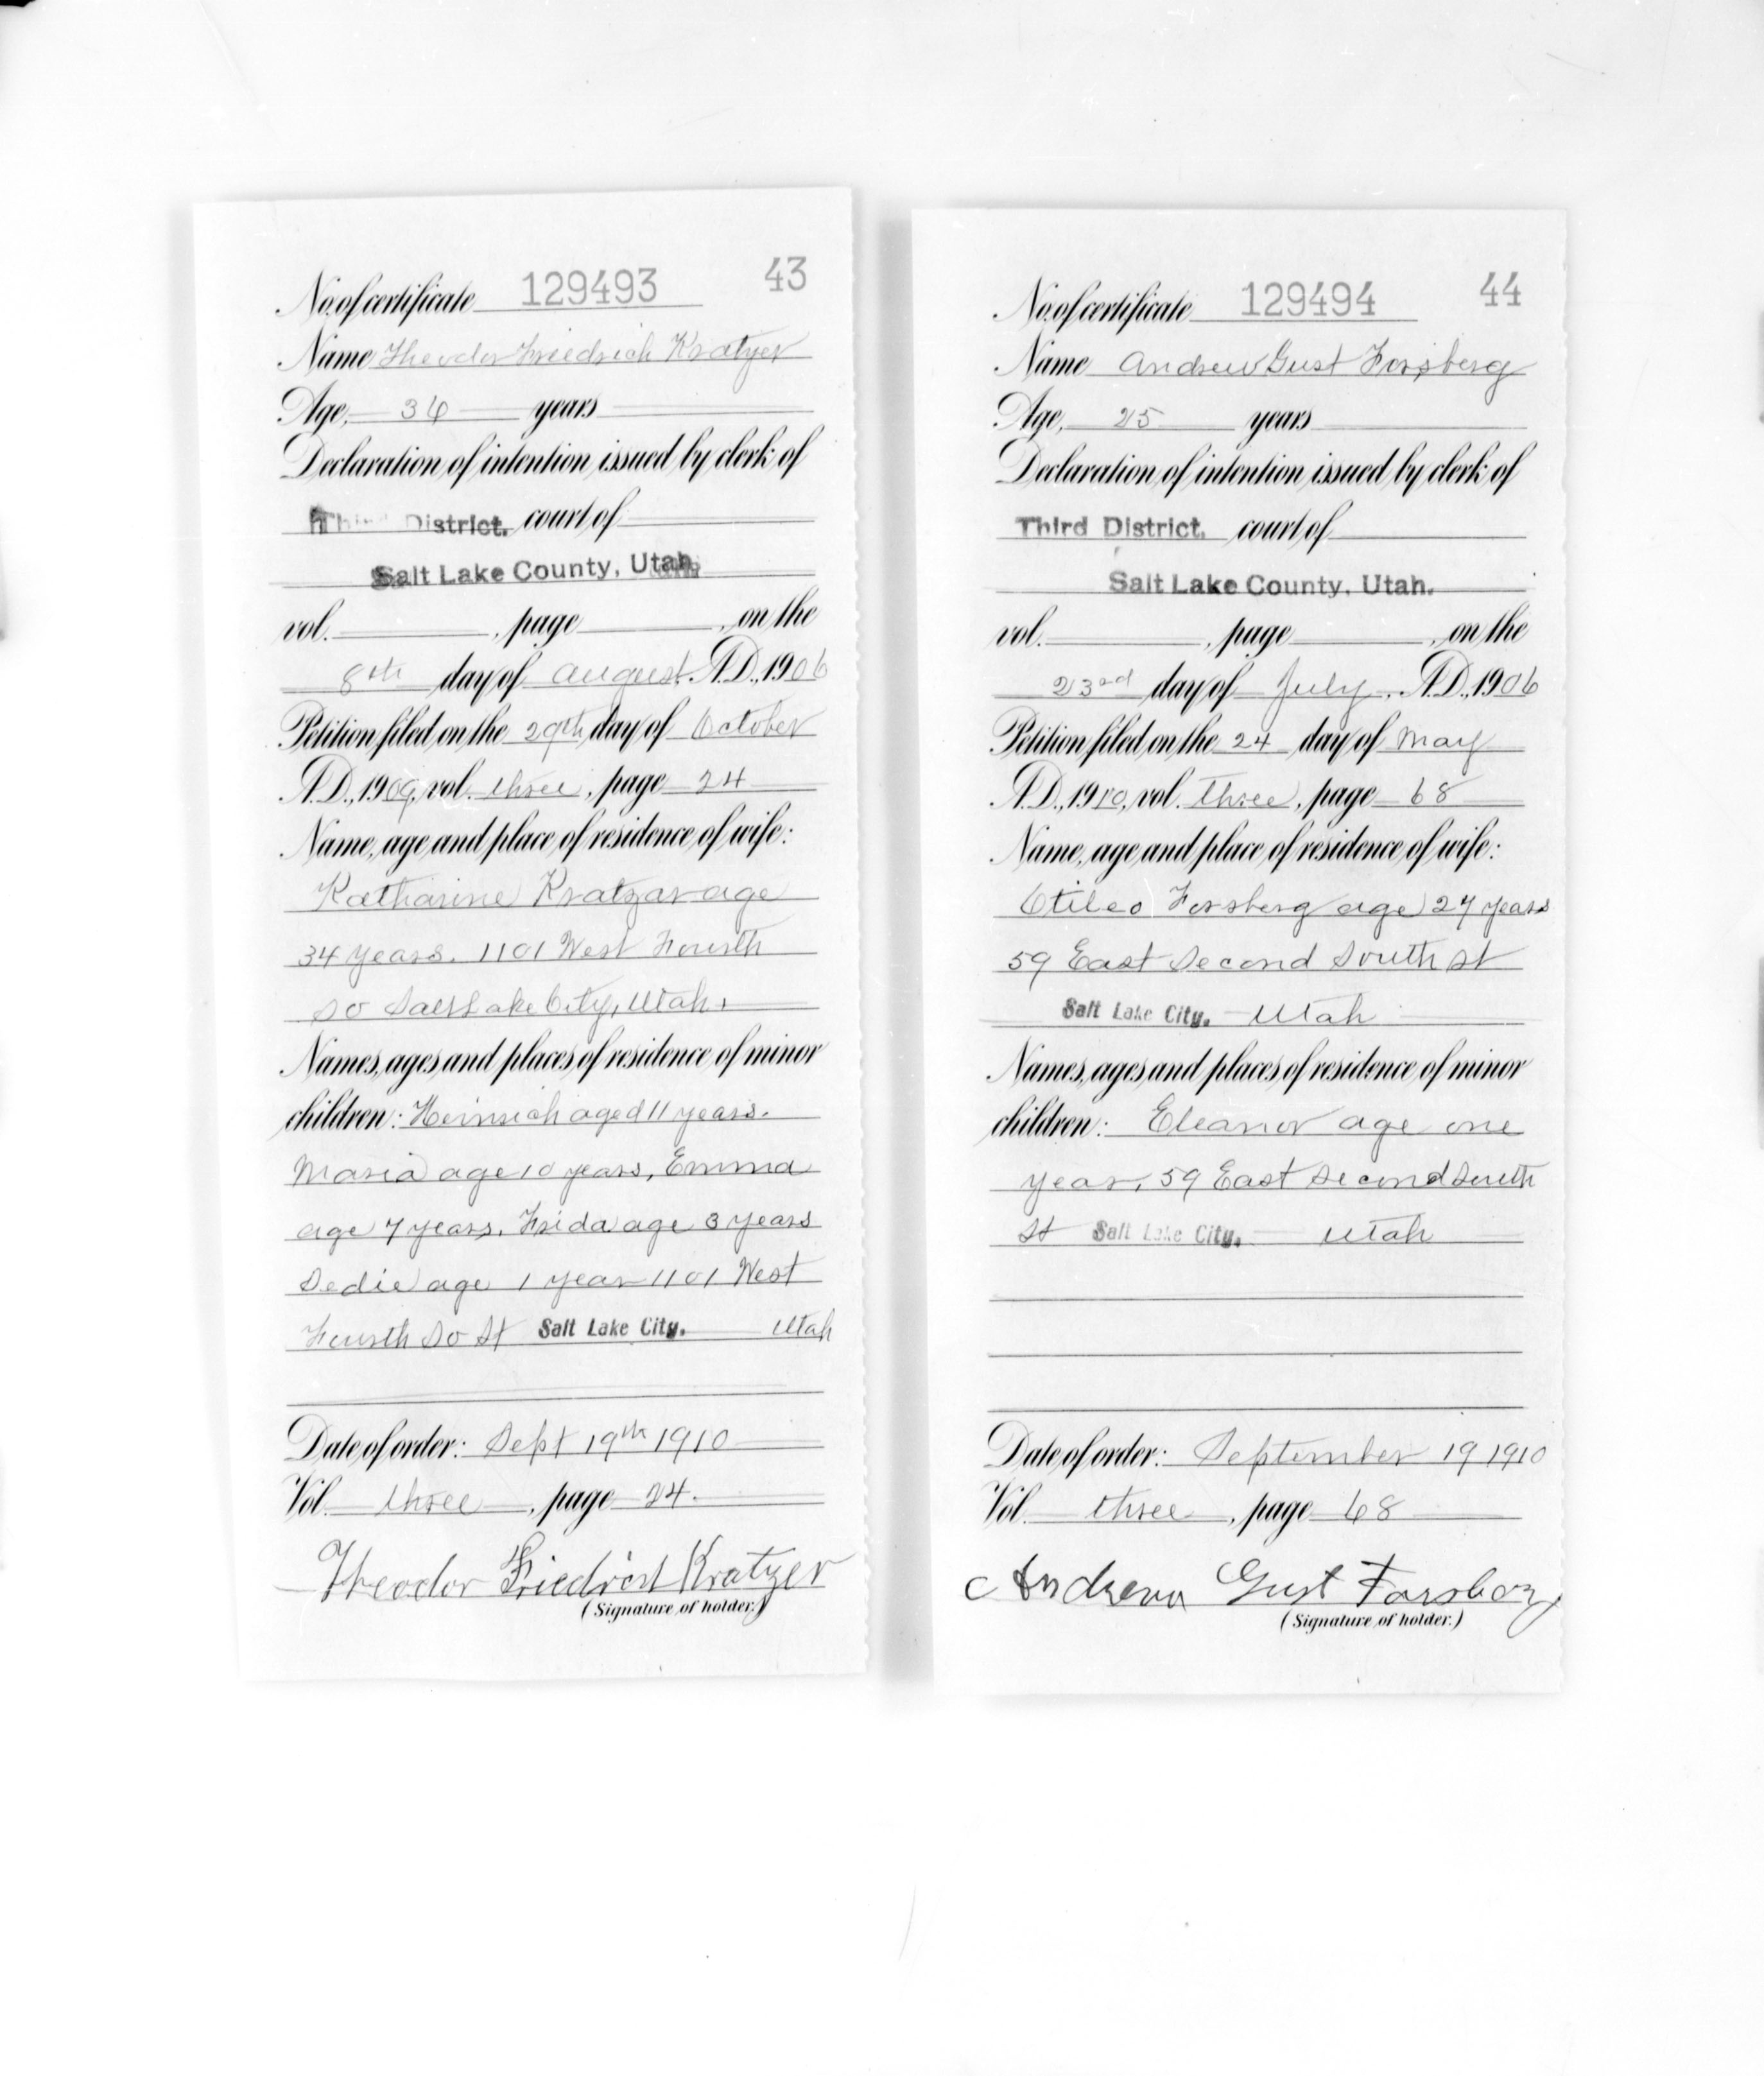 No. of certificate 129493 43
Name Theodor Friedrich Kratzer
Age, 34 years
Declaration of intention issued by clerk of
Third District. court of
Salt Lake County, Utah.
vol. , page , on the
8th day of August A.D., 1906
Petition filed on the 29th day of October
A.D., 1909, vol. three, page 24
Name, age and place of residence of wife:
Katharine Kratzar age
34 years. 1101 West Fourth
So Salt Lake City, Utah.
Names, ages and places of residence of minor
children: Heinrich aged 11 years.
Maria age 10 years, Emma
age 7 years. Frida age 3 years
Sedie age 1 year 1101 West
Fourth So St Salt Lake City. Utah
Date of order: Sept 19th 1910
Vol. three, page 24.
Theodor Friedrich Kratzer
(Signature of holder.)
No. of certificate 129494 44
Name Andrew Gust Forsberg
Age, 25 years
Declaration of intention issued by clerk of
Third District. court of
Salt Lake County, Utah.
vol. , page , on the
23rd day of July, A.D., 1906
Petition filed on the 24 day of May
A.D., 1910, vol. three, page 68
Name, age and place of residence of wife:
Otileo Forsberg age 27 years
59 East Second South St
Salt Lake City. Utah
Names, ages and places of residence of minor
children: Eleanor age one
year. 59 East Second South
St Salt Lake City. Utah
Date of order: September 19 1910
Vol. three, page 68
Andrew Gust Forsberg
(Signature of holder.)